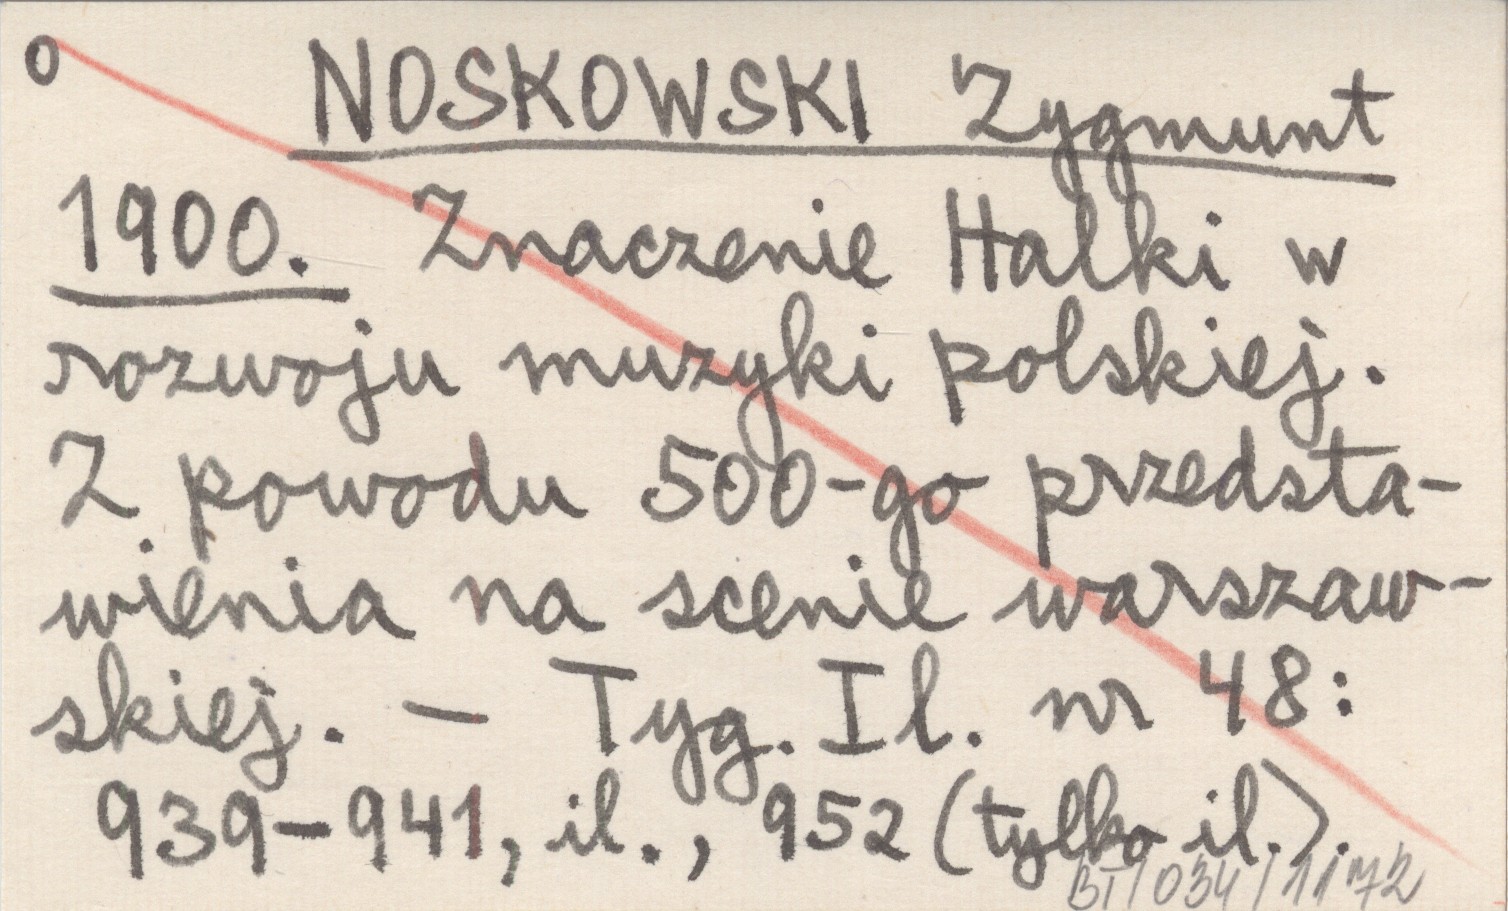 o NOSKOWSKI Zygmunt
1900. Znaczenie Halki w
rozwoju muzyki polskiej.
Z powodu 500-go przedsta-
wienia na scenie warszaw-
skiej. — Tyg. Il. nr 48:
939-941, il., 952 (tylko il.).
BT/034/1172